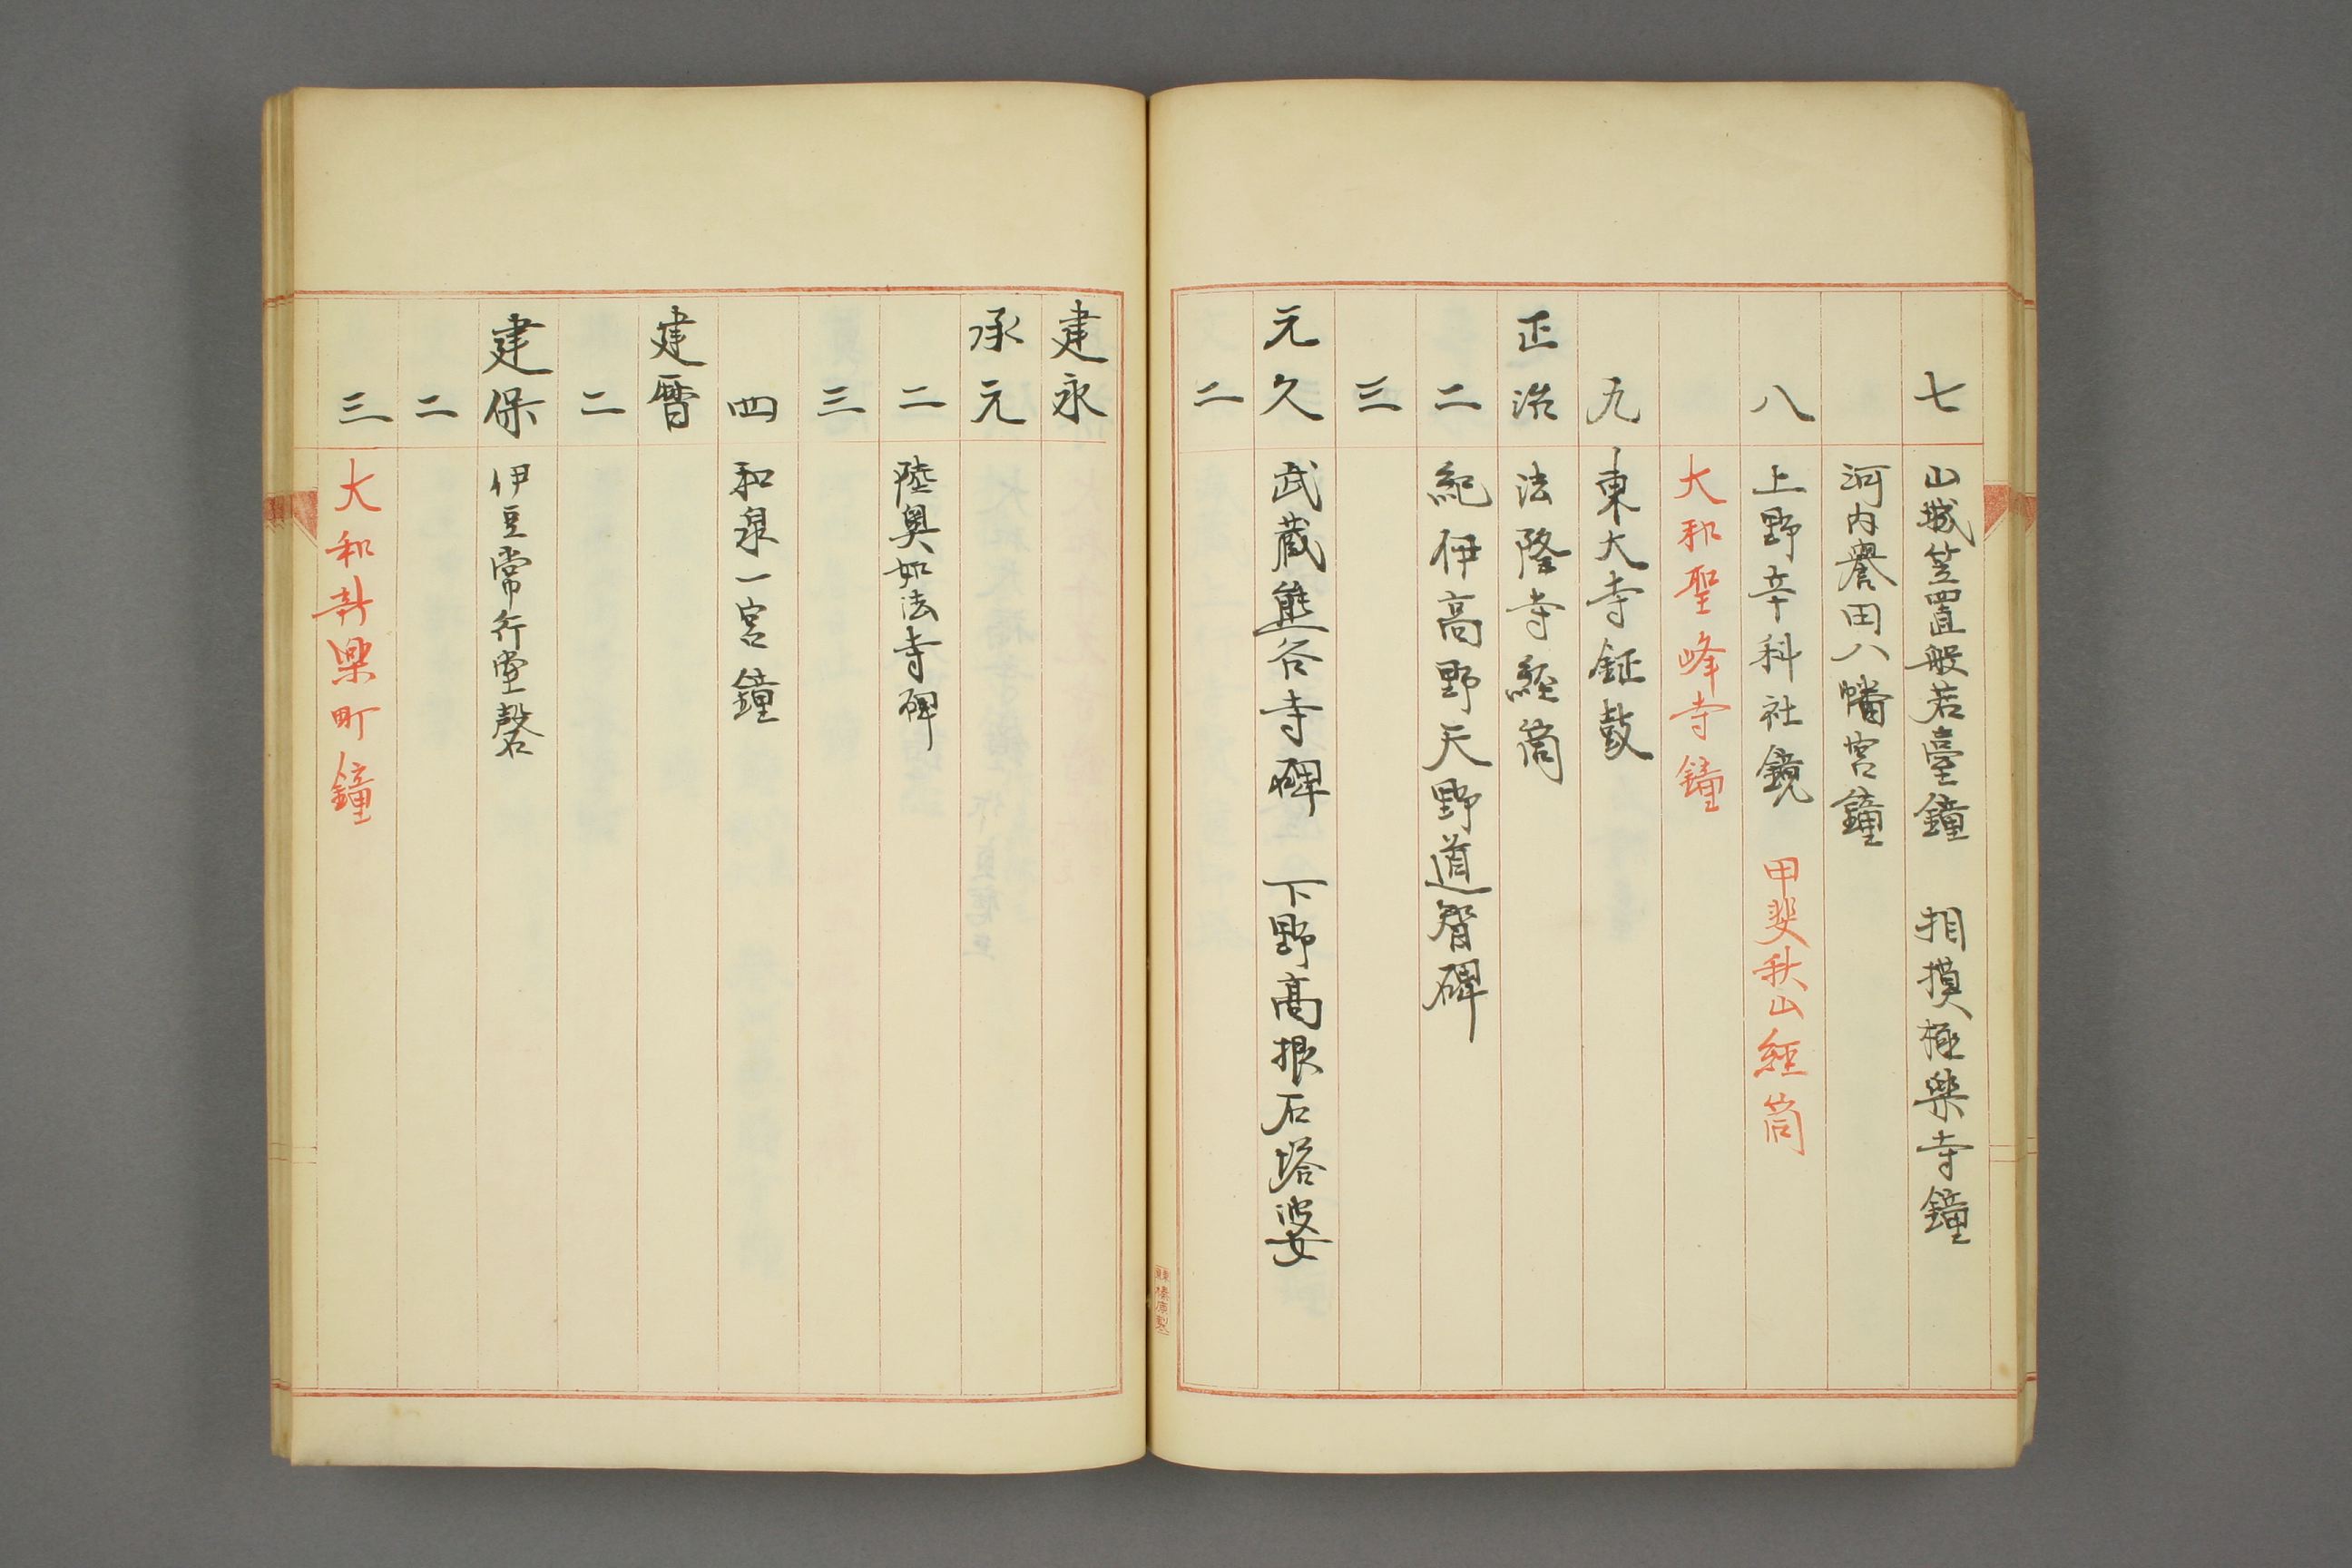 七 山城笠置般若臺鐘 相摸極樂寺鐘
河内譽田八幡宮鐘
八 上野辛科社鏡 甲斐秋山經筒
大和聖峰寺鐘
九 東大寺鉦鼓
正治 法隆寺經筒
二 紀伊高野天野道智碑
三
元久 武蔵熊谷寺碑 下野高根石塔婆
二
榛原製
建永
承元
二 陸奥如法寺碑
三
四 和泉一宮鐘
建暦
二
建保 伊豆常行堂磬
二
三 大和楽町鐘